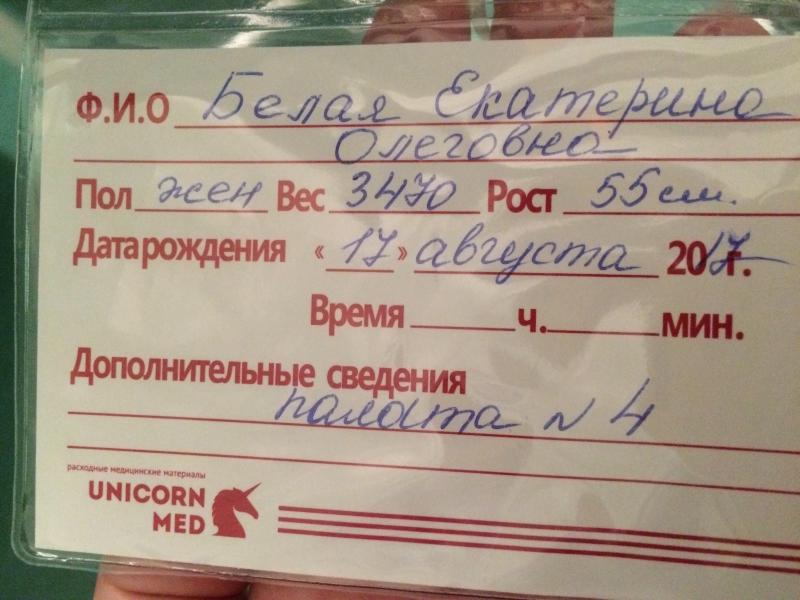 Ф.И.О Белая Екатерина
Олеговна
Пол жен Вес 3470 Рост 55 см.
Дата рождения «17» августа 2017г.
Время ч. мин.
Дополнительные сведения
палата N 4
расходные медицинские материалы
UNICORN
MED